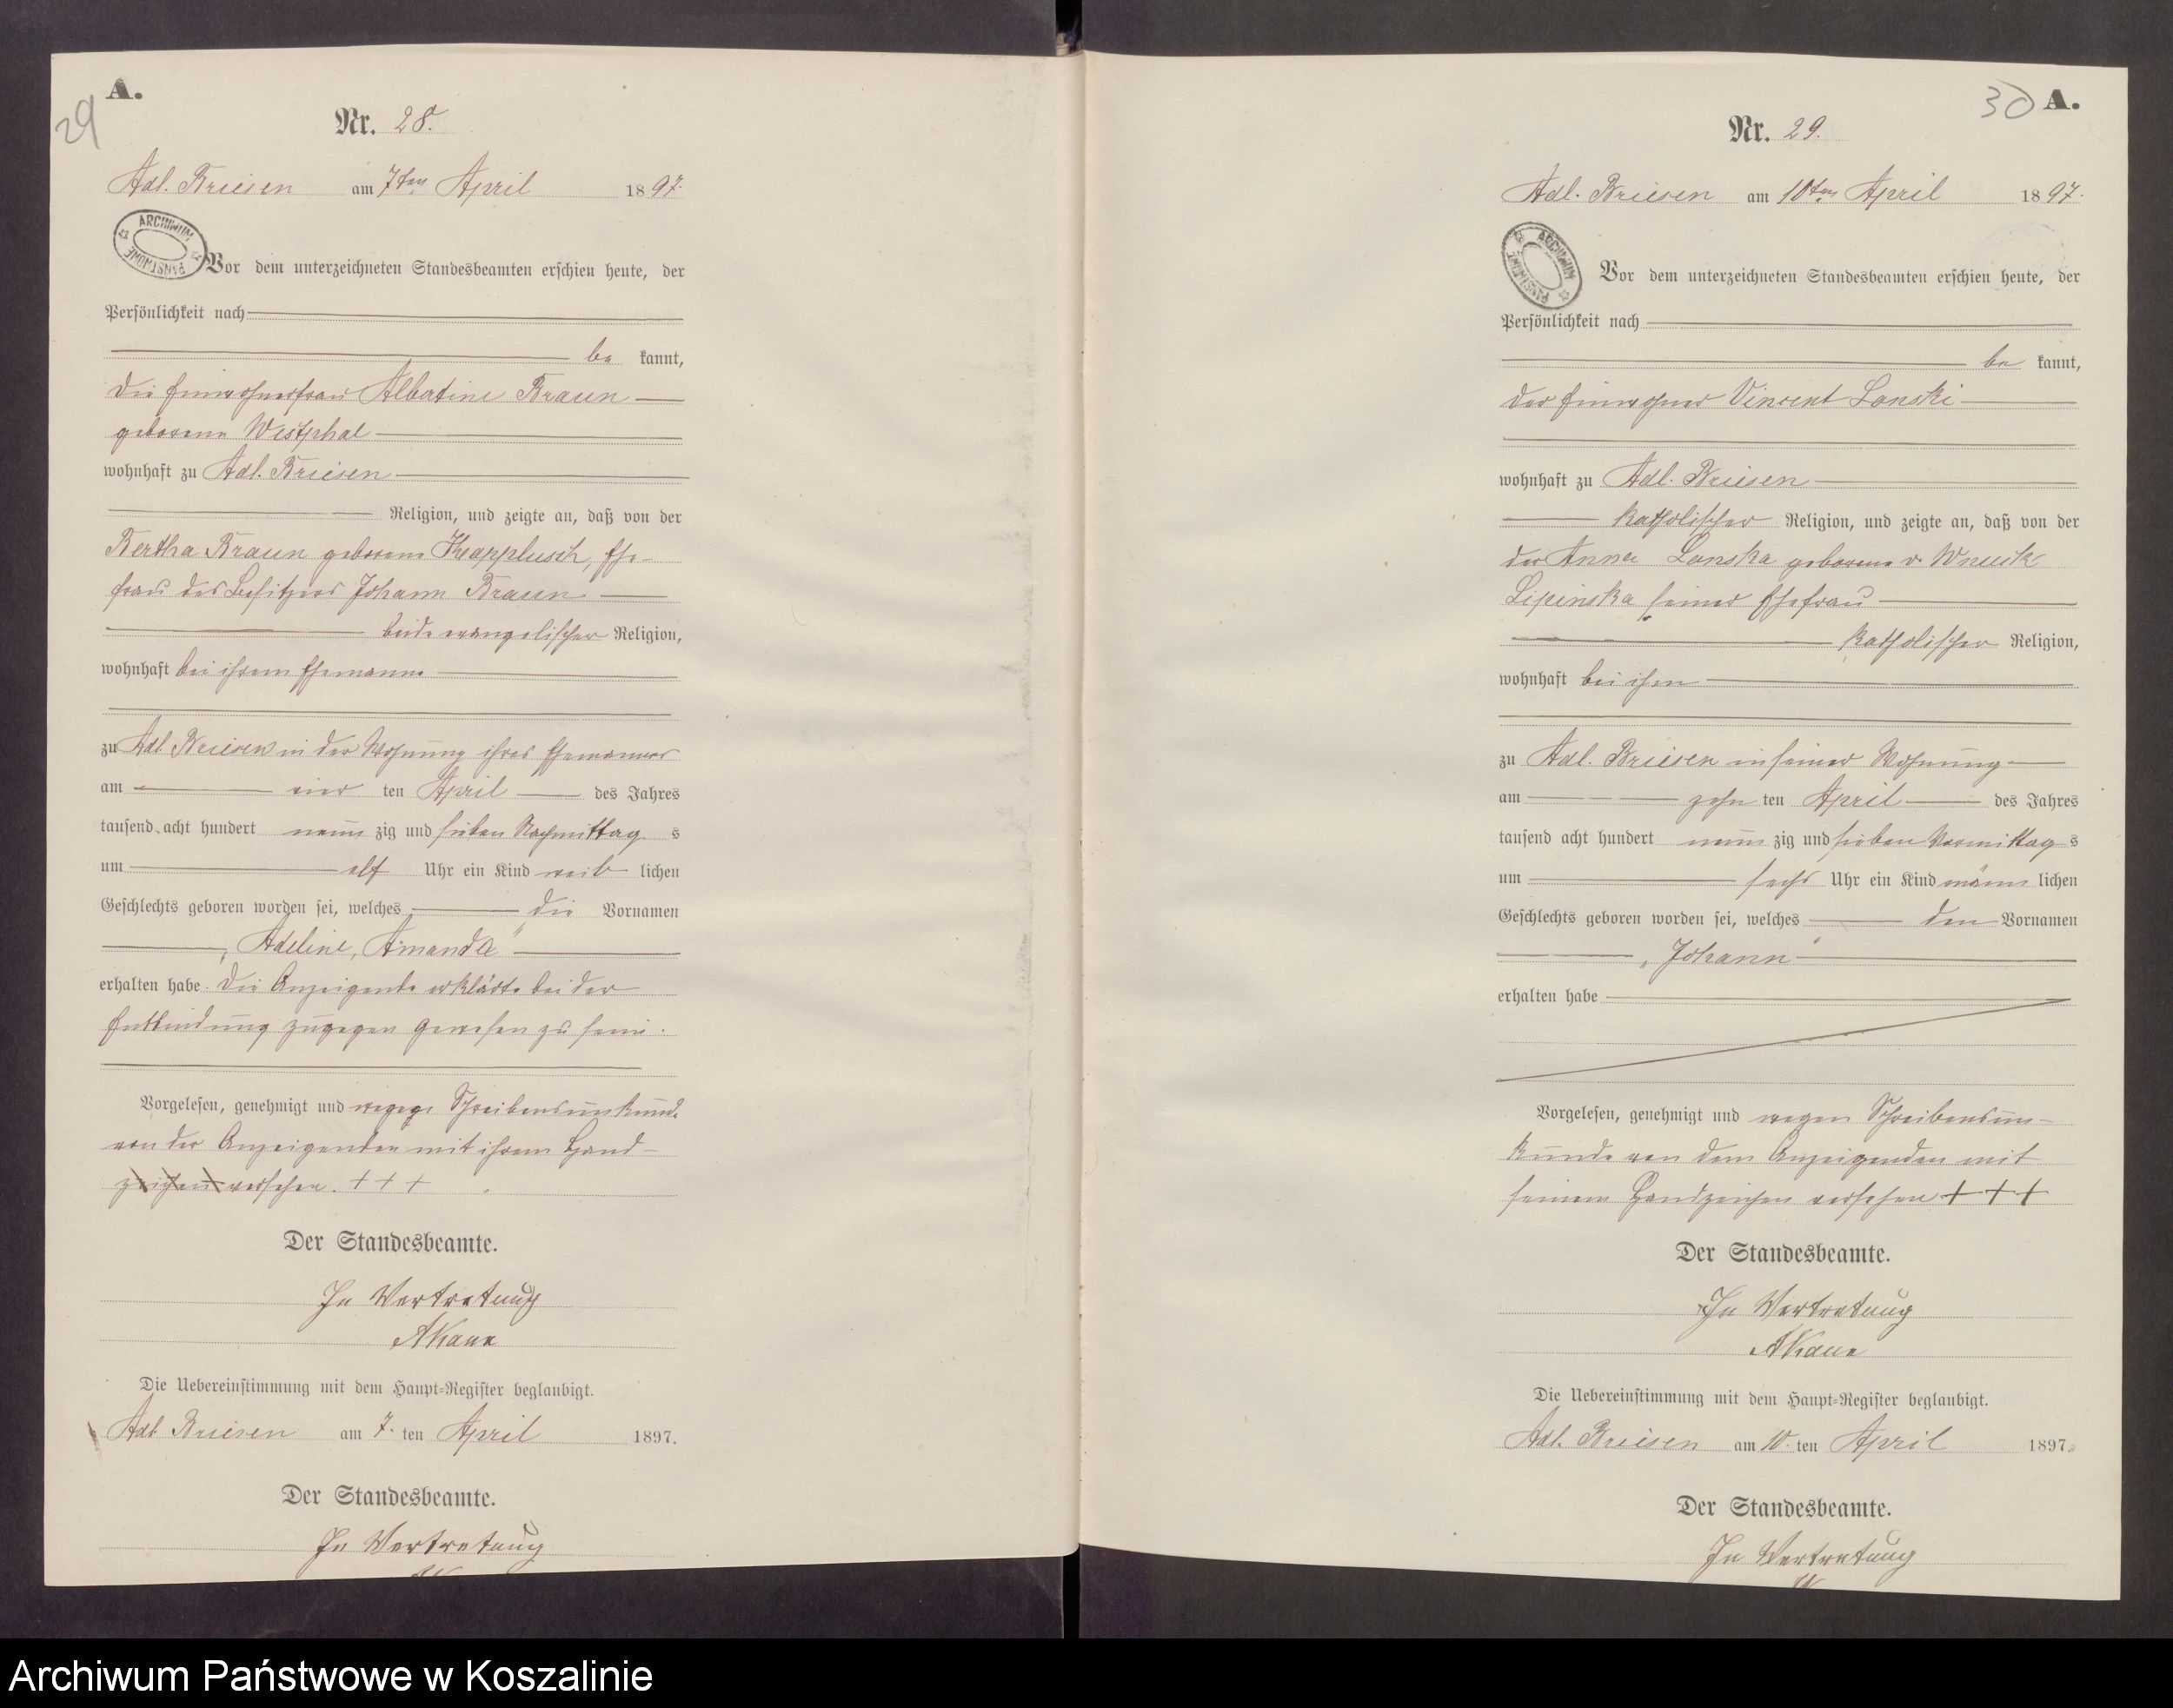 A.
29
Nr. 28.
Adl. Briesen am 7ten April 1897.
ARCHIWUM PAŃSTWOWE
Vor dem unterzeichneten Standesbeamten erschien heute, der
Persönlichkeit nach
be kannt,
die Einwohnerfrau Albertine Braun
geborene Westphal
wohnhaft zu Adl. Briesen
Religion, und zeigte an, daß von der
Bertha Braun geborene Knapplusch, Ehe-
frau des Besitzers Johann Braun
beide evangelischer Religion,
wohnhaft bei ihrem Ehemanne
zu Adl. Briesen in der Wohnung ihres Ehemannes
am vier ten April des Jahres
tausend acht hundert neun zig und sieben Nachmittag s
um elf Uhr ein Kind weib lichen
Geschlechts geboren worden sei, welches die Vornamen
„Adeline, Amanda“
erhalten habe. Die Anzeigende erklärte bei der
Entbindung zugegen gewesen zu sein.
Vorgelesen, genehmigt und wegen Schreibensunkunde
von der Anzeigenden mit ihrem Hand-
zeichen versehen. + + +
Der Standesbeamte.
In Vertretung
Die Uebereinstimmung mit dem Haupt-Register beglaubigt.
Adl. Briesen am 7. ten April 1897.
Der Standesbeamte.
In Vertretung
30 A.
Nr. 29.
Adl. Briesen am 10ten April 1897.
ARCHIWUM PAŃSTWOWE
Vor dem unterzeichneten Standesbeamten erschien heute, der
Persönlichkeit nach
be kannt,
der Einwohner Vincent Lonski
wohnhaft zu Adl. Briesen
katholischer Religion, und zeigte an, daß von der
der Anna Lonska geborene v. Wnuck
Lipinska seiner Ehefrau
katholischer Religion,
wohnhaft bei ihm
zu Adl. Briesen in seiner Wohnung
am zehn ten April des Jahres
tausend acht hundert neun zig und sieben Vormittag s
um sechs Uhr ein Kind männ lichen
Geschlechts geboren worden sei, welches den Vornamen
„Johann“
erhalten habe
Vorgelesen, genehmigt und wegen Schreibensun-
kunde von dem Anzeigenden mit
seinem Handzeichen versehen + + +
Der Standesbeamte.
In Vertretung
Die Uebereinstimmung mit dem Haupt-Register beglaubigt.
Adl. Briesen am 10. ten April 1897.
Der Standesbeamte.
In Vertretung
Archiwum Państwowe w Koszalinie